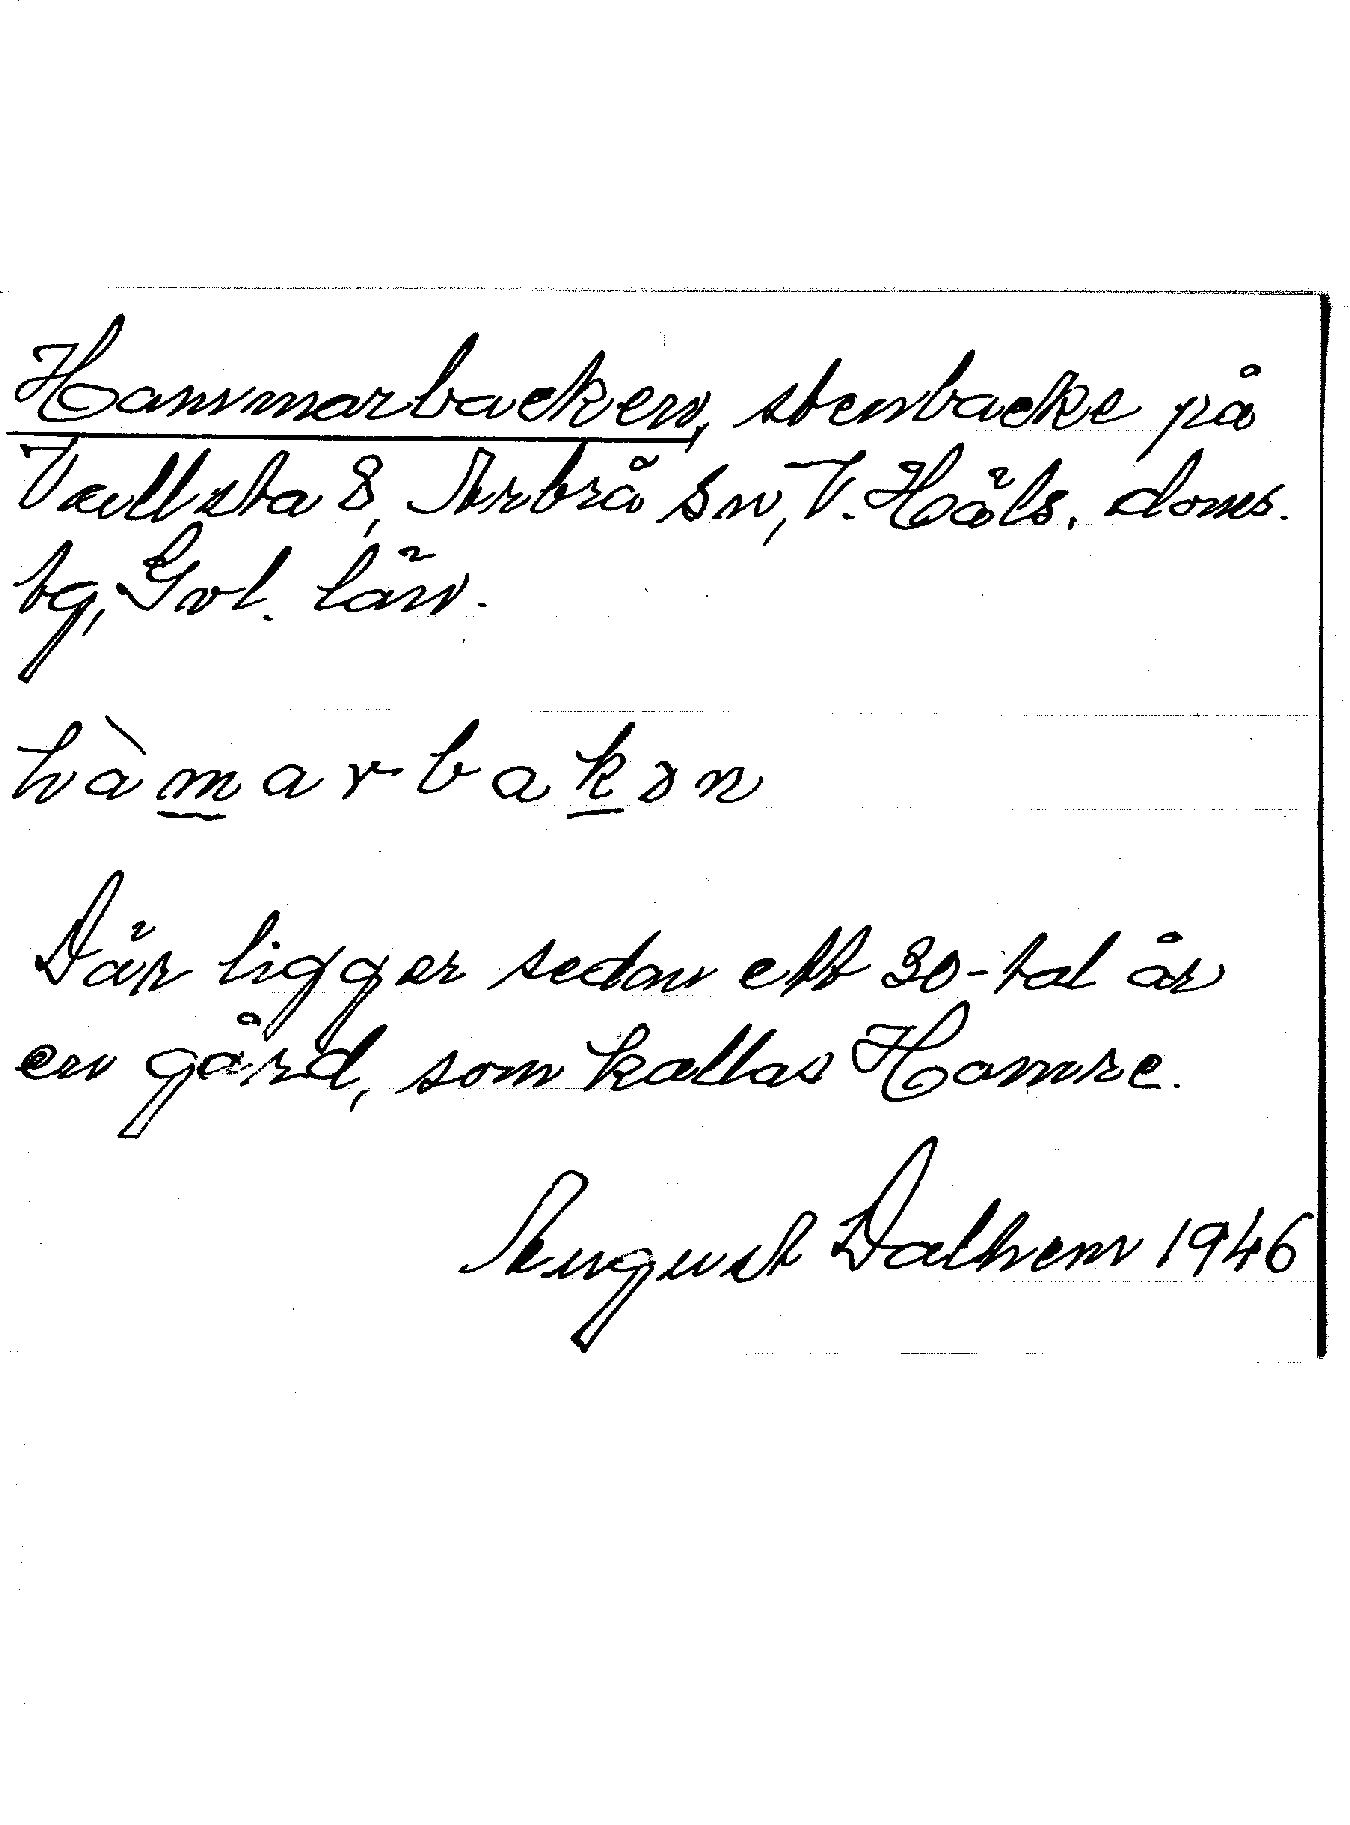 Hammarbacken, stenbacke på
Vallsta 8, Arbrå sn, V. Häls. doms.
tg, Gvl. län.
hàmarbakən
Där ligger sedan ett 30-tal år
en gård, som kallas Hamre.
August Dalhem 1946